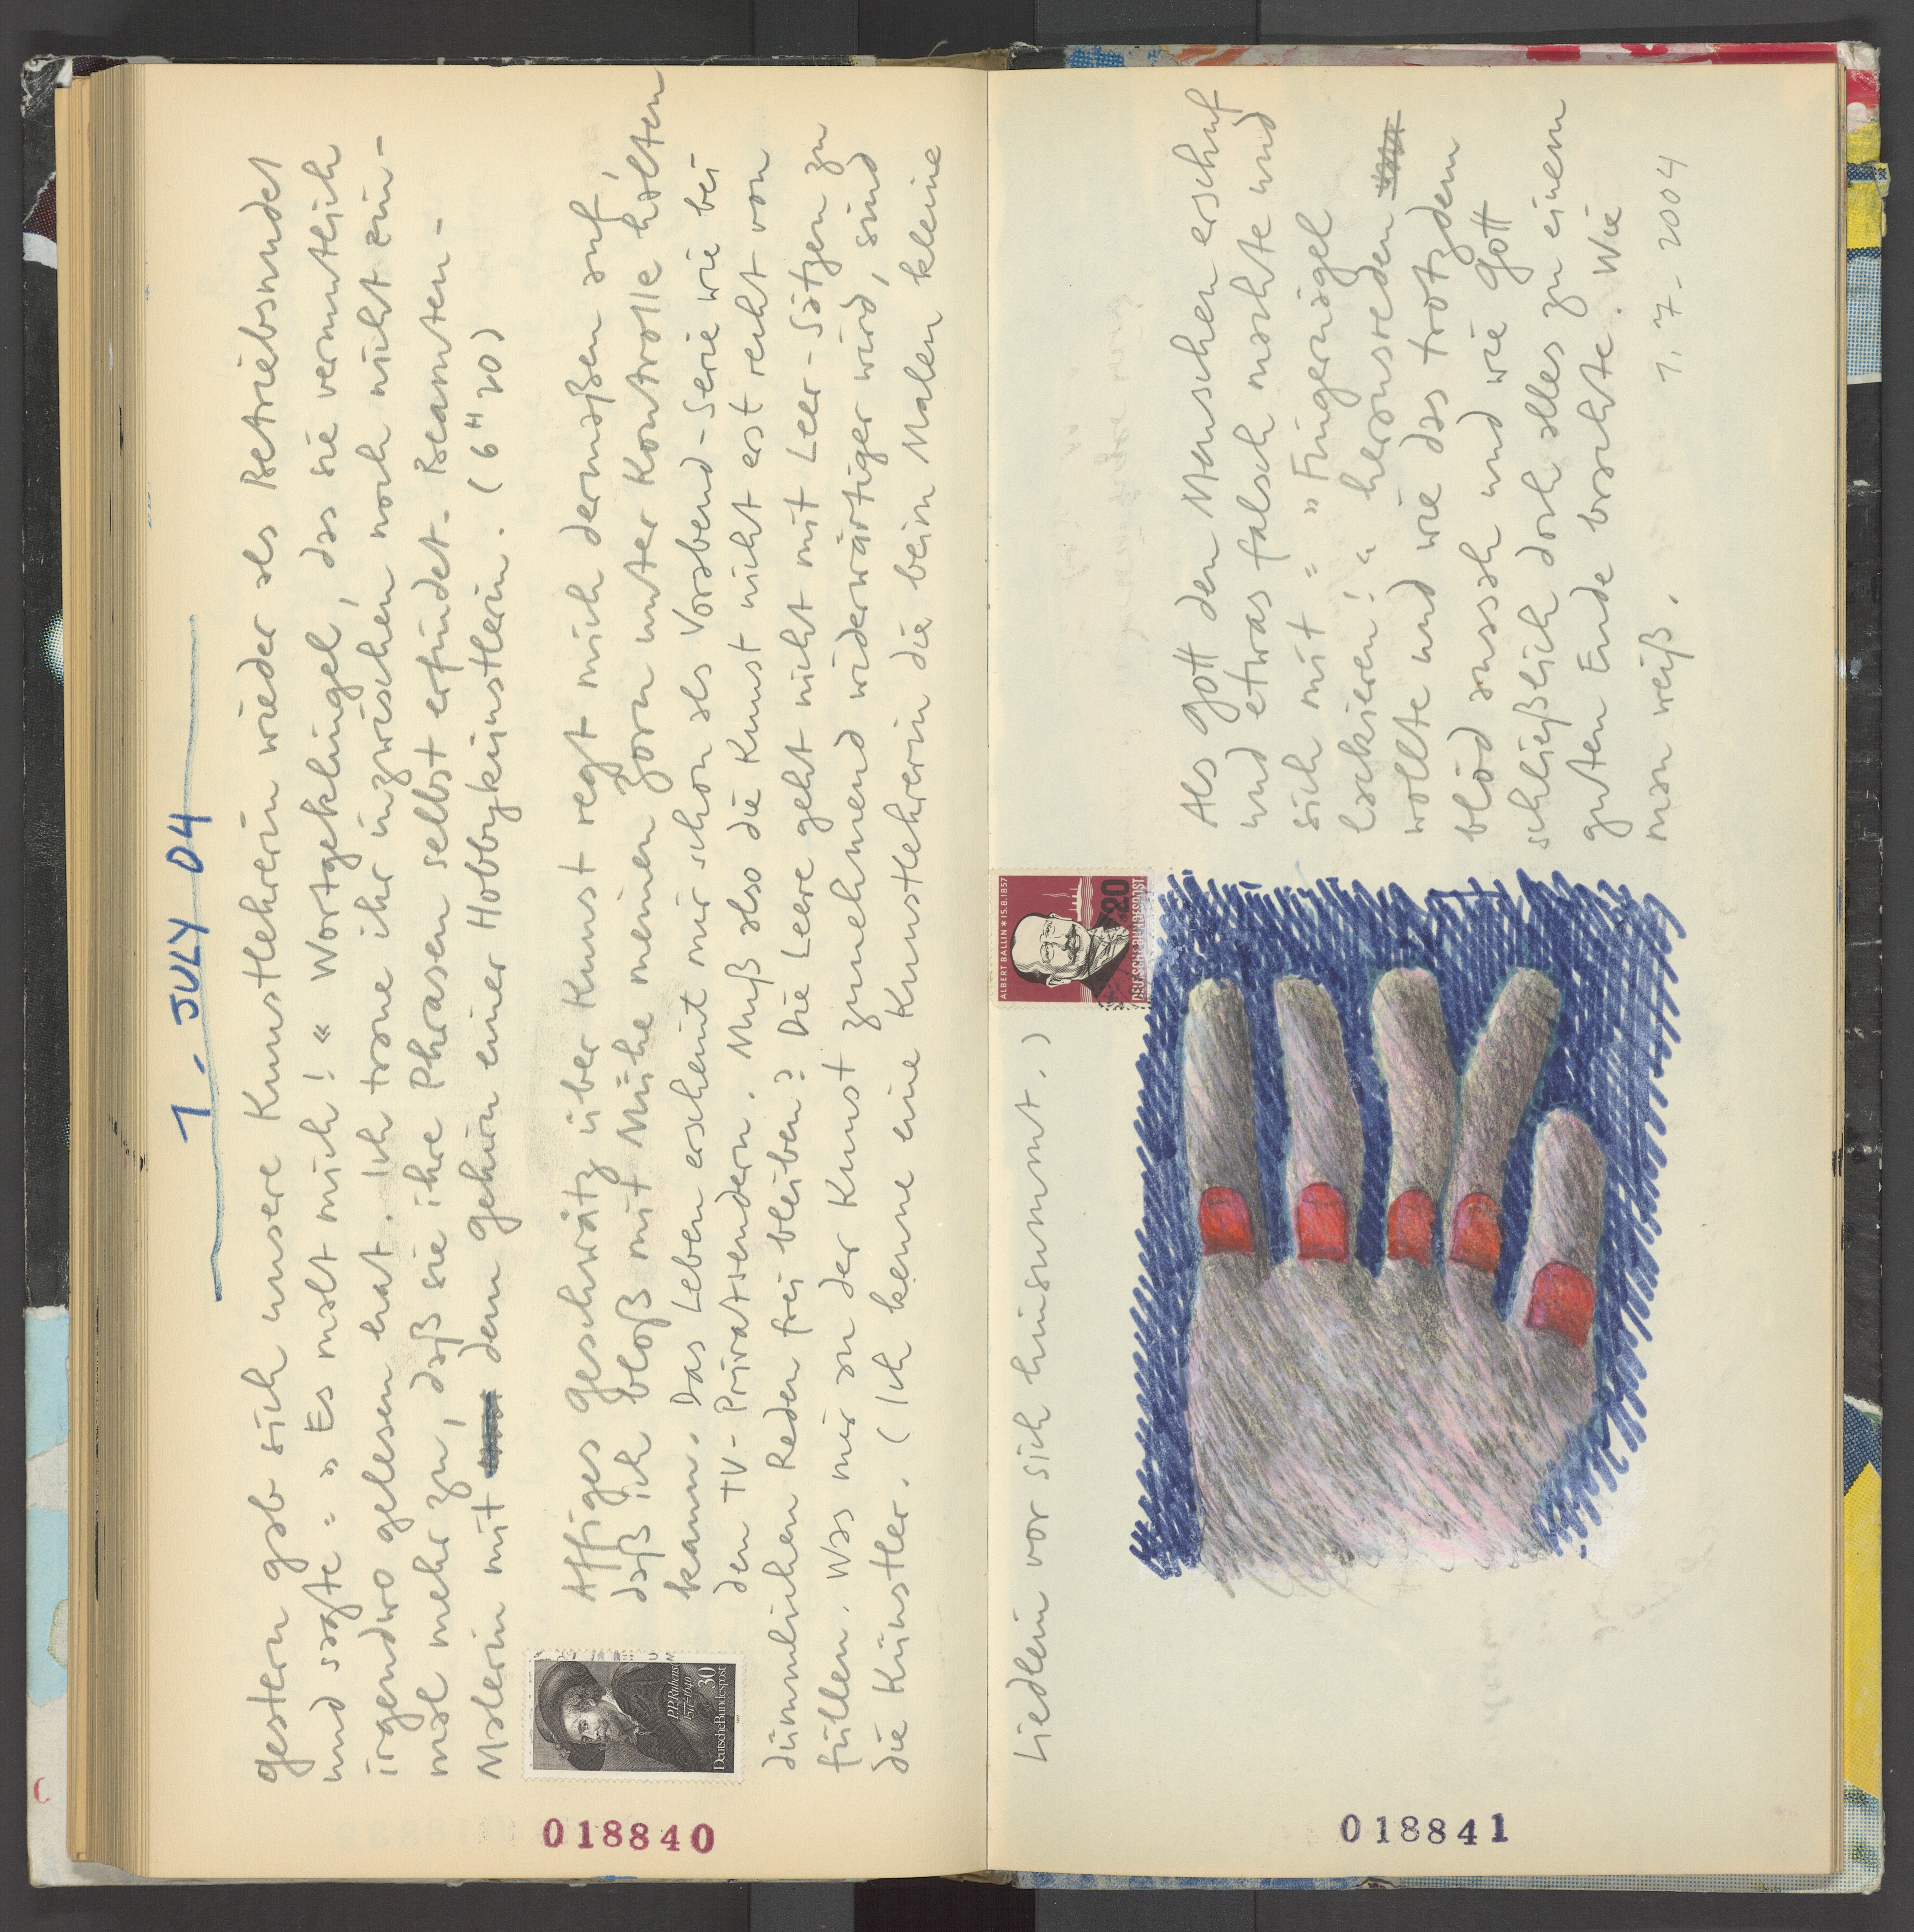 1. JULY 04
Gestern gab sich unsere Kunstlehrerin wieder als Betriebsnudel
und sagte: »Es malt mich!« Wortgeklingel, das sie vermutlich
irgendwo gelesen hat. Ich traue ihr inzwischen noch nicht ein-
mal mehr zu, daß sie ihre Phrasen selbst erfindet. Beamten-
Malerin mit dem Gehirn einer Hobbykünstlerin. (6 H 20)
Affiges Geschwätz über Kunst regt mich dermaßen auf,
daß ich bloß mit Mühe meinen Zorn unter Kontrolle halten
kann. Das Leben erscheint mir schon als Vorabend-Serie wie bei
den TV-Privatsendern. Muß also die Kunst nicht erst recht von
dümmlichen Reden frei bleiben? Die Leere geht nicht mit Leer-Sätzen zu
füllen. Was mir an der Kunst zunehmend widerwärtiger wird, sind
die Künstler. (Ich kenne eine Kunstlehrerin die beim Malen kleine
P.P.Rubens
1577-1640
30
Deutsche Bundespost
018840
Liedlein vor sich hinsummt.)
ALBERT BALLIN * 15.8.1857
20
DEUTSCHE BUNDESPOST
Als Gott den Menschen erschuf
und etwas falsch machte und
sich mit: »Fingernägel
lackieren!« herausreden
wollte und wie das trotzdem
blöd aussah und wie Gott
schließlich doch alles zu einem
guten Ende brachte. Wie
man weiß.
1.7.2004
018841